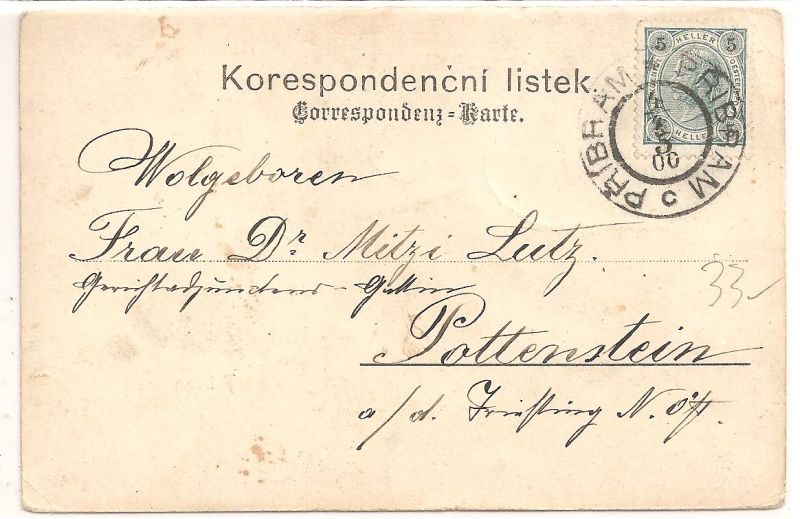 Korespondenční lístek.
Correspondenz-Karte.
5 HELLER 5
HELLER
PŘÍBRAM PŘIBRAM
3
00
Wolgeboren
Frau Dr Mitzi Lutz.
Gerichtsadjunctens-Gattin
Pottenstein
a/d. Triesting N. Öst.
33-